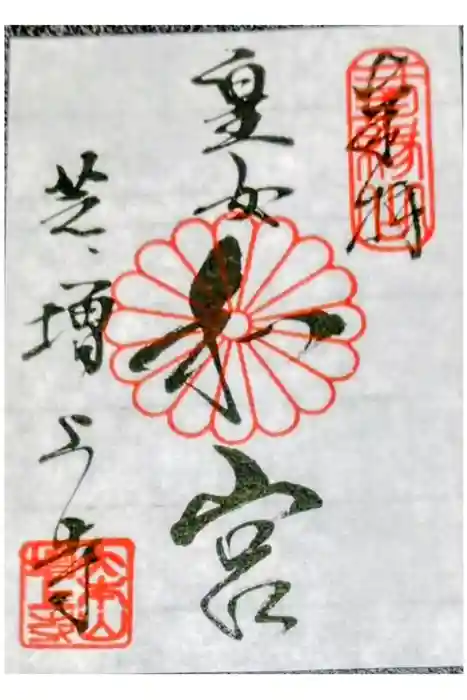 奉拝
皇女
和宮
芝 増上寺